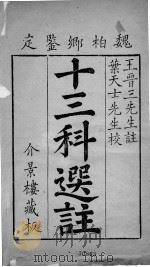 魏柏鄉鑒定
王晉三先生註
葉天士先生校
十三科選註
介景樓藏板
mtoou.info